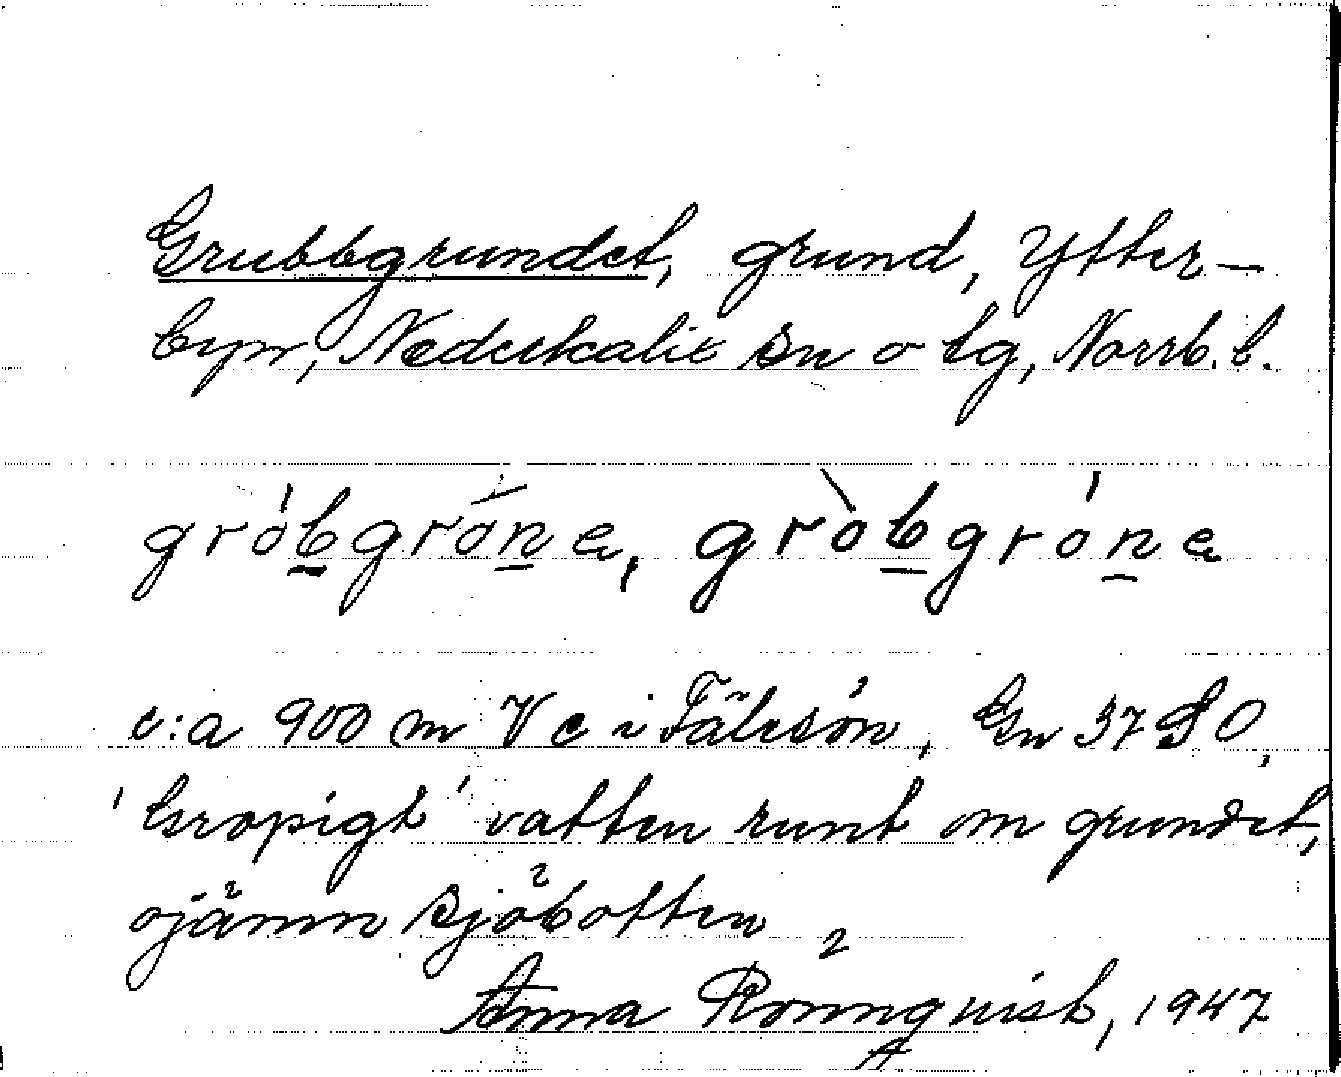 Grubbgrundet, grund, Ytter-
byn, Nederkalix sn o tg, Norrb. l.
gròbgróne, gròbgróne
c:a 900 m V e i Gn 37 SO,
'Gropigt' vatten runt om grundet,
ojämn sjöbotten
Anna Rönnqvist, 1947